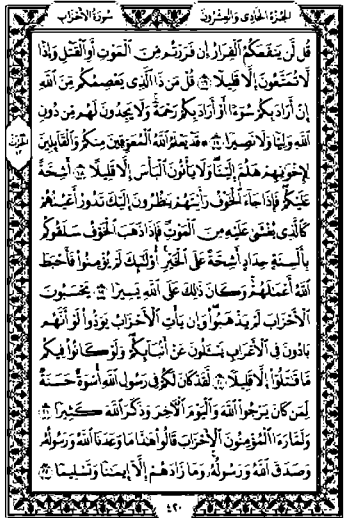 الجزء الحادي والعشرون سورة الأحزاب
قُل لَّن يَنفَعَكُمُ الْفِرَارُ إِن فَرَرْتُم مِّنَ الْمَوْتِ أَوِ الْقَتْلِ وَإِذًا
لَّا تُمَتَّعُونَ إِلَّا قَلِيلًا ١٦ قُلْ مَن ذَا الَّذِي يَعْصِمُكُم مِّنَ اللَّهِ
إِنْ أَرَادَ بِكُمْ سُوءًا أَوْ أَرَادَ بِكُمْ رَحْمَةً وَلَا يَجِدُونَ لَهُم مِّن دُونِ
اللَّهِ وَلِيًّا وَلَا نَصِيرًا ١٧ ۞ قَدْ يَعْلَمُ اللَّهُ الْمُعَوِّقِينَ مِنكُمْ وَالْقَائِلِينَ
لِإِخْوَانِهِمْ هَلُمَّ إِلَيْنَا وَلَا يَأْتُونَ الْبَأْسَ إِلَّا قَلِيلًا ١٨ أَشِحَّةً
عَلَيْكُمْ فَإِذَا جَاءَ الْخَوْفُ رَأَيْتَهُمْ يَنظُرُونَ إِلَيْكَ تَدُورُ أَعْيُنُهُمْ
كَالَّذِي يُغْشَىٰ عَلَيْهِ مِنَ الْمَوْتِ فَإِذَا ذَهَبَ الْخَوْفُ سَلَقُوكُم
بِأَلْسِنَةٍ حِدَادٍ أَشِحَّةً عَلَى الْخَيْرِ أُولَٰئِكَ لَمْ يُؤْمِنُوا فَأَحْبَطَ
اللَّهُ أَعْمَالَهُمْ وَكَانَ ذَٰلِكَ عَلَى اللَّهِ يَسِيرًا ١٩ يَحْسَبُونَ
الْأَحْزَابَ لَمْ يَذْهَبُوا وَإِن يَأْتِ الْأَحْزَابُ يَوَدُّوا لَوْ أَنَّهُم
بَادُونَ فِي الْأَعْرَابِ يَسْأَلُونَ عَنْ أَنبَائِكُمْ وَلَوْ كَانُوا فِيكُم
مَّا قَاتَلُوا إِلَّا قَلِيلًا ٢٠ لَّقَدْ كَانَ لَكُمْ فِي رَسُولِ اللَّهِ أُسْوَةٌ حَسَنَةٌ
لِّمَن كَانَ يَرْجُو اللَّهَ وَالْيَوْمَ الْآخِرَ وَذَكَرَ اللَّهَ كَثِيرًا ٢١
وَلَمَّا رَأَى الْمُؤْمِنُونَ الْأَحْزَابَ قَالُوا هَٰذَا مَا وَعَدَنَا اللَّهُ وَرَسُولُهُ
وَصَدَقَ اللَّهُ وَرَسُولُهُ وَمَا زَادَهُمْ إِلَّا إِيمَانًا وَتَسْلِيمًا ٢٢
٤٢٠